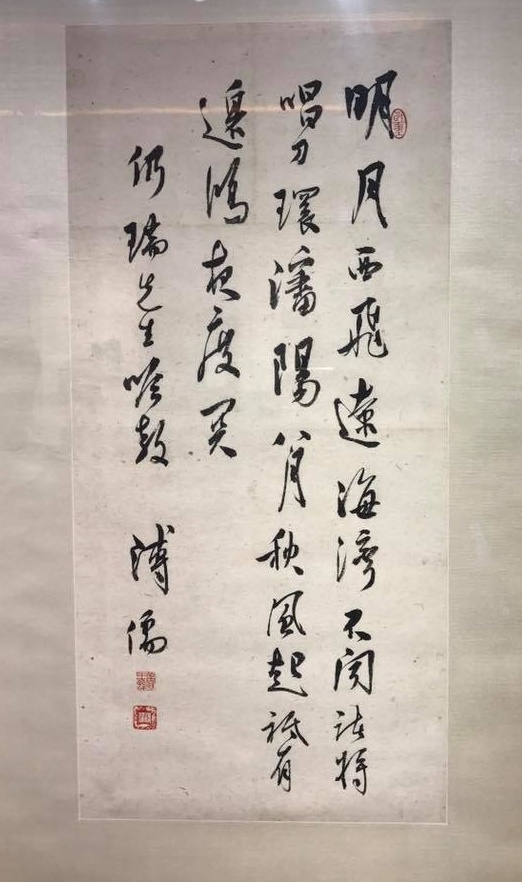 明月西飛遼海灣不聞諸將
唱刀環瀋陽八月秋風起祇有
邊鴻夜度關
仍瑞先生吟教 溥儒